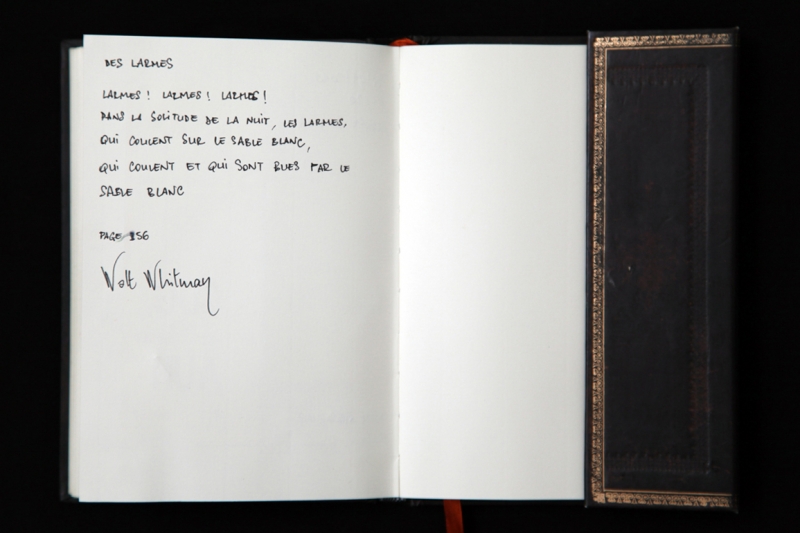 DES LARMES
LARMES ! LARMES ! LARMES !
DANS LA SOLITUDE DE LA NUIT, LES LARMES,
QUI COULENT SUR LE SABLE BLANC,
QUI COULENT ET QUI SONT BUES PAR LE
SABLE BLANC
PAGE 356
Walt Whitman